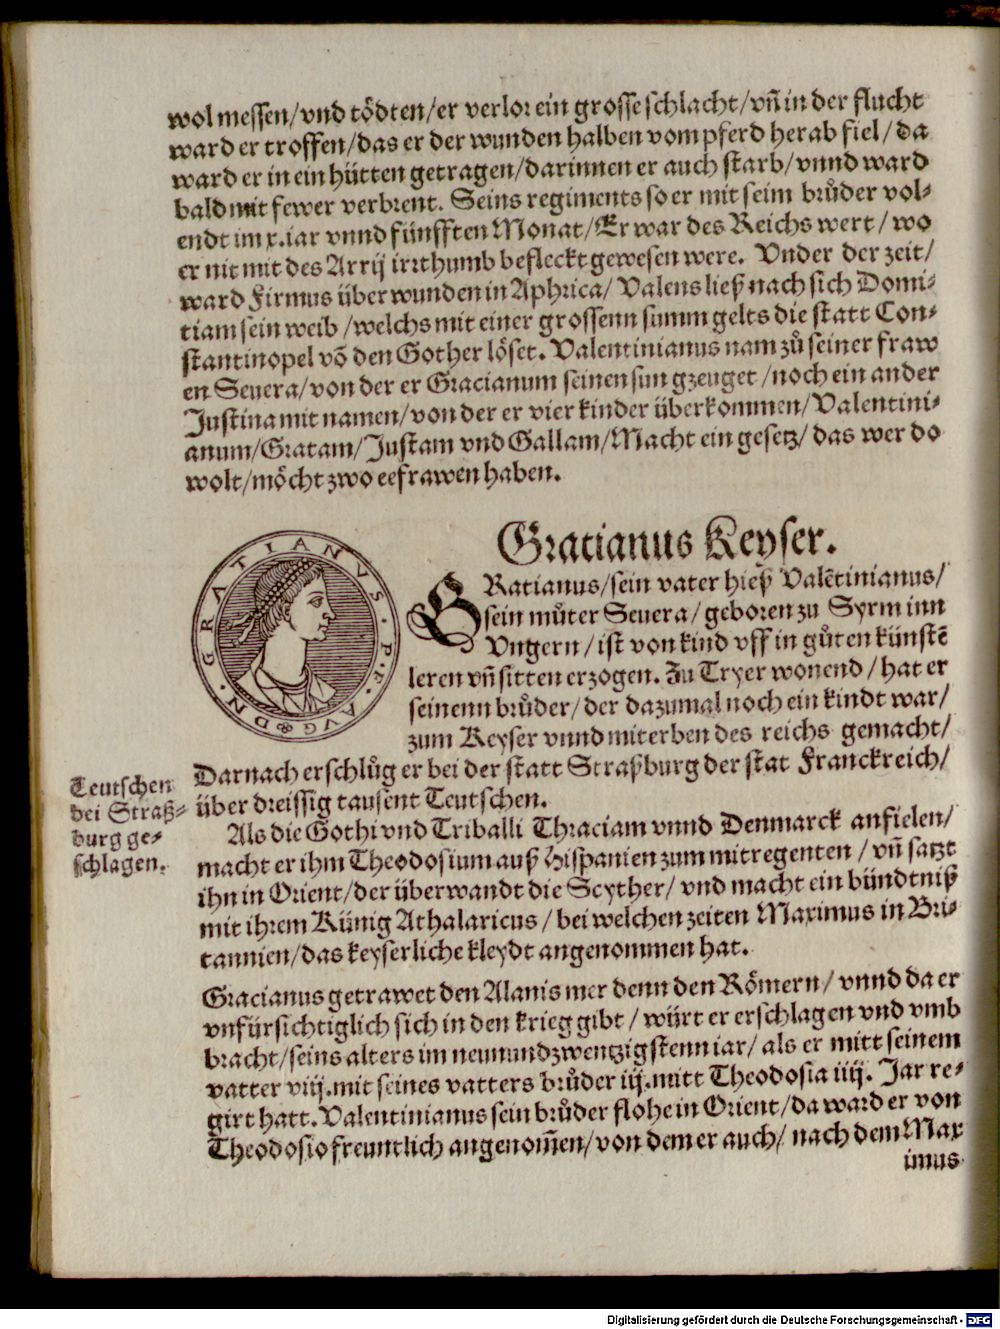 wol messen/vnd tödten/er verlor ein grosse schlacht/vñ in der flucht
ward er troffen/das er der wunden halben vom pferd herab fiel/da
ward er in ein hütten getragen/darinnen er auch starb/vnnd ward
bald mit fewer verbrent. Seins regiments so er mit seim brůder vol-
endt im x.iar vnnd fünfften Monat/Er war des Reichs wert/wo
er nit mit des Arrij irrthumb befleckt gewesen were. Vnder der zeit/
ward Firmus überwunden in Aphrica/Valens ließ nach sich Domi-
tiam sein weib/welchs mit einer grossenn summ gelts die statt Con-
stantinopel võ den Gother löset. Valentinianus nam zů seiner fraw
en Seuera/von der er Gracianum seinen sun gzeuget/noch ein ander
Justina mit namen/von der er vier kinder überkommen/Valentini-
anum/Gratam/Justam vnd Gallam/Macht ein gesetz/das wer do
wolt/möcht zwo eefrawen haben.
Gratianus Keyser.
DN. GRATIANVS. P.F. AVG
GRatianus/sein vater hieß Valẽtinianus/
sein můter Seuera/geboren zu Syrm inn
Vngern/ist von kind vff in gůten künstẽ
leren vñ sitten erzogen. Zu Tryer wonend/hat er
seinenn brůder/der dazumal noch ein kindt war/
zum Keyser vnnd miterben des reichs gemacht/
Darnach erschlůg er bei der statt Straßburg der stat Franckreich/
über dreissig tausent Teutschen.
Teutschen
bei Straß-
burg ge-
schlagen.
Als die Gothi vnd Triballi Thraciam vnnd Denmarck anfielen/
macht er ihm Theodosium auß Hispanien zum mitregenten/vñ satzt
ihn in Orient/der überwandt die Scyther/vnd macht ein bündtniß
mit ihrem Künig Athalaricus/bei welchen zeiten Maximus in Bri-
tannien/das keyserliche kleydt angenommen hat.
Gracianus getrawet den Alanis mer denn den Römern/vnnd da er
vnfürsichtiglich sich in den krieg gibt/würt er erschlagen vnd vmb
bracht/seins alters im neunundzwentzigstenn iar/als er mitt seinem
vatter viij.mit seines vatters brůder iij.mitt Theodosia iiij. Jar re-
girt hatt. Valentinianus sein brůder flohe in Orient/da ward er von
Theodosio freuntlich angenom̃en/von dem er auch/nach dem Max
imus
Digitalisierung gefördert durch die Deutsche Forschungsgemeinschaft - DFG